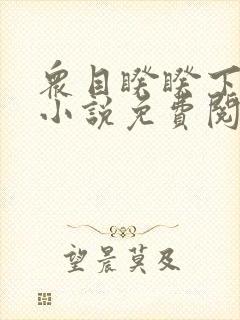 衆目睽睽下
小說免費閱
望晨莫及